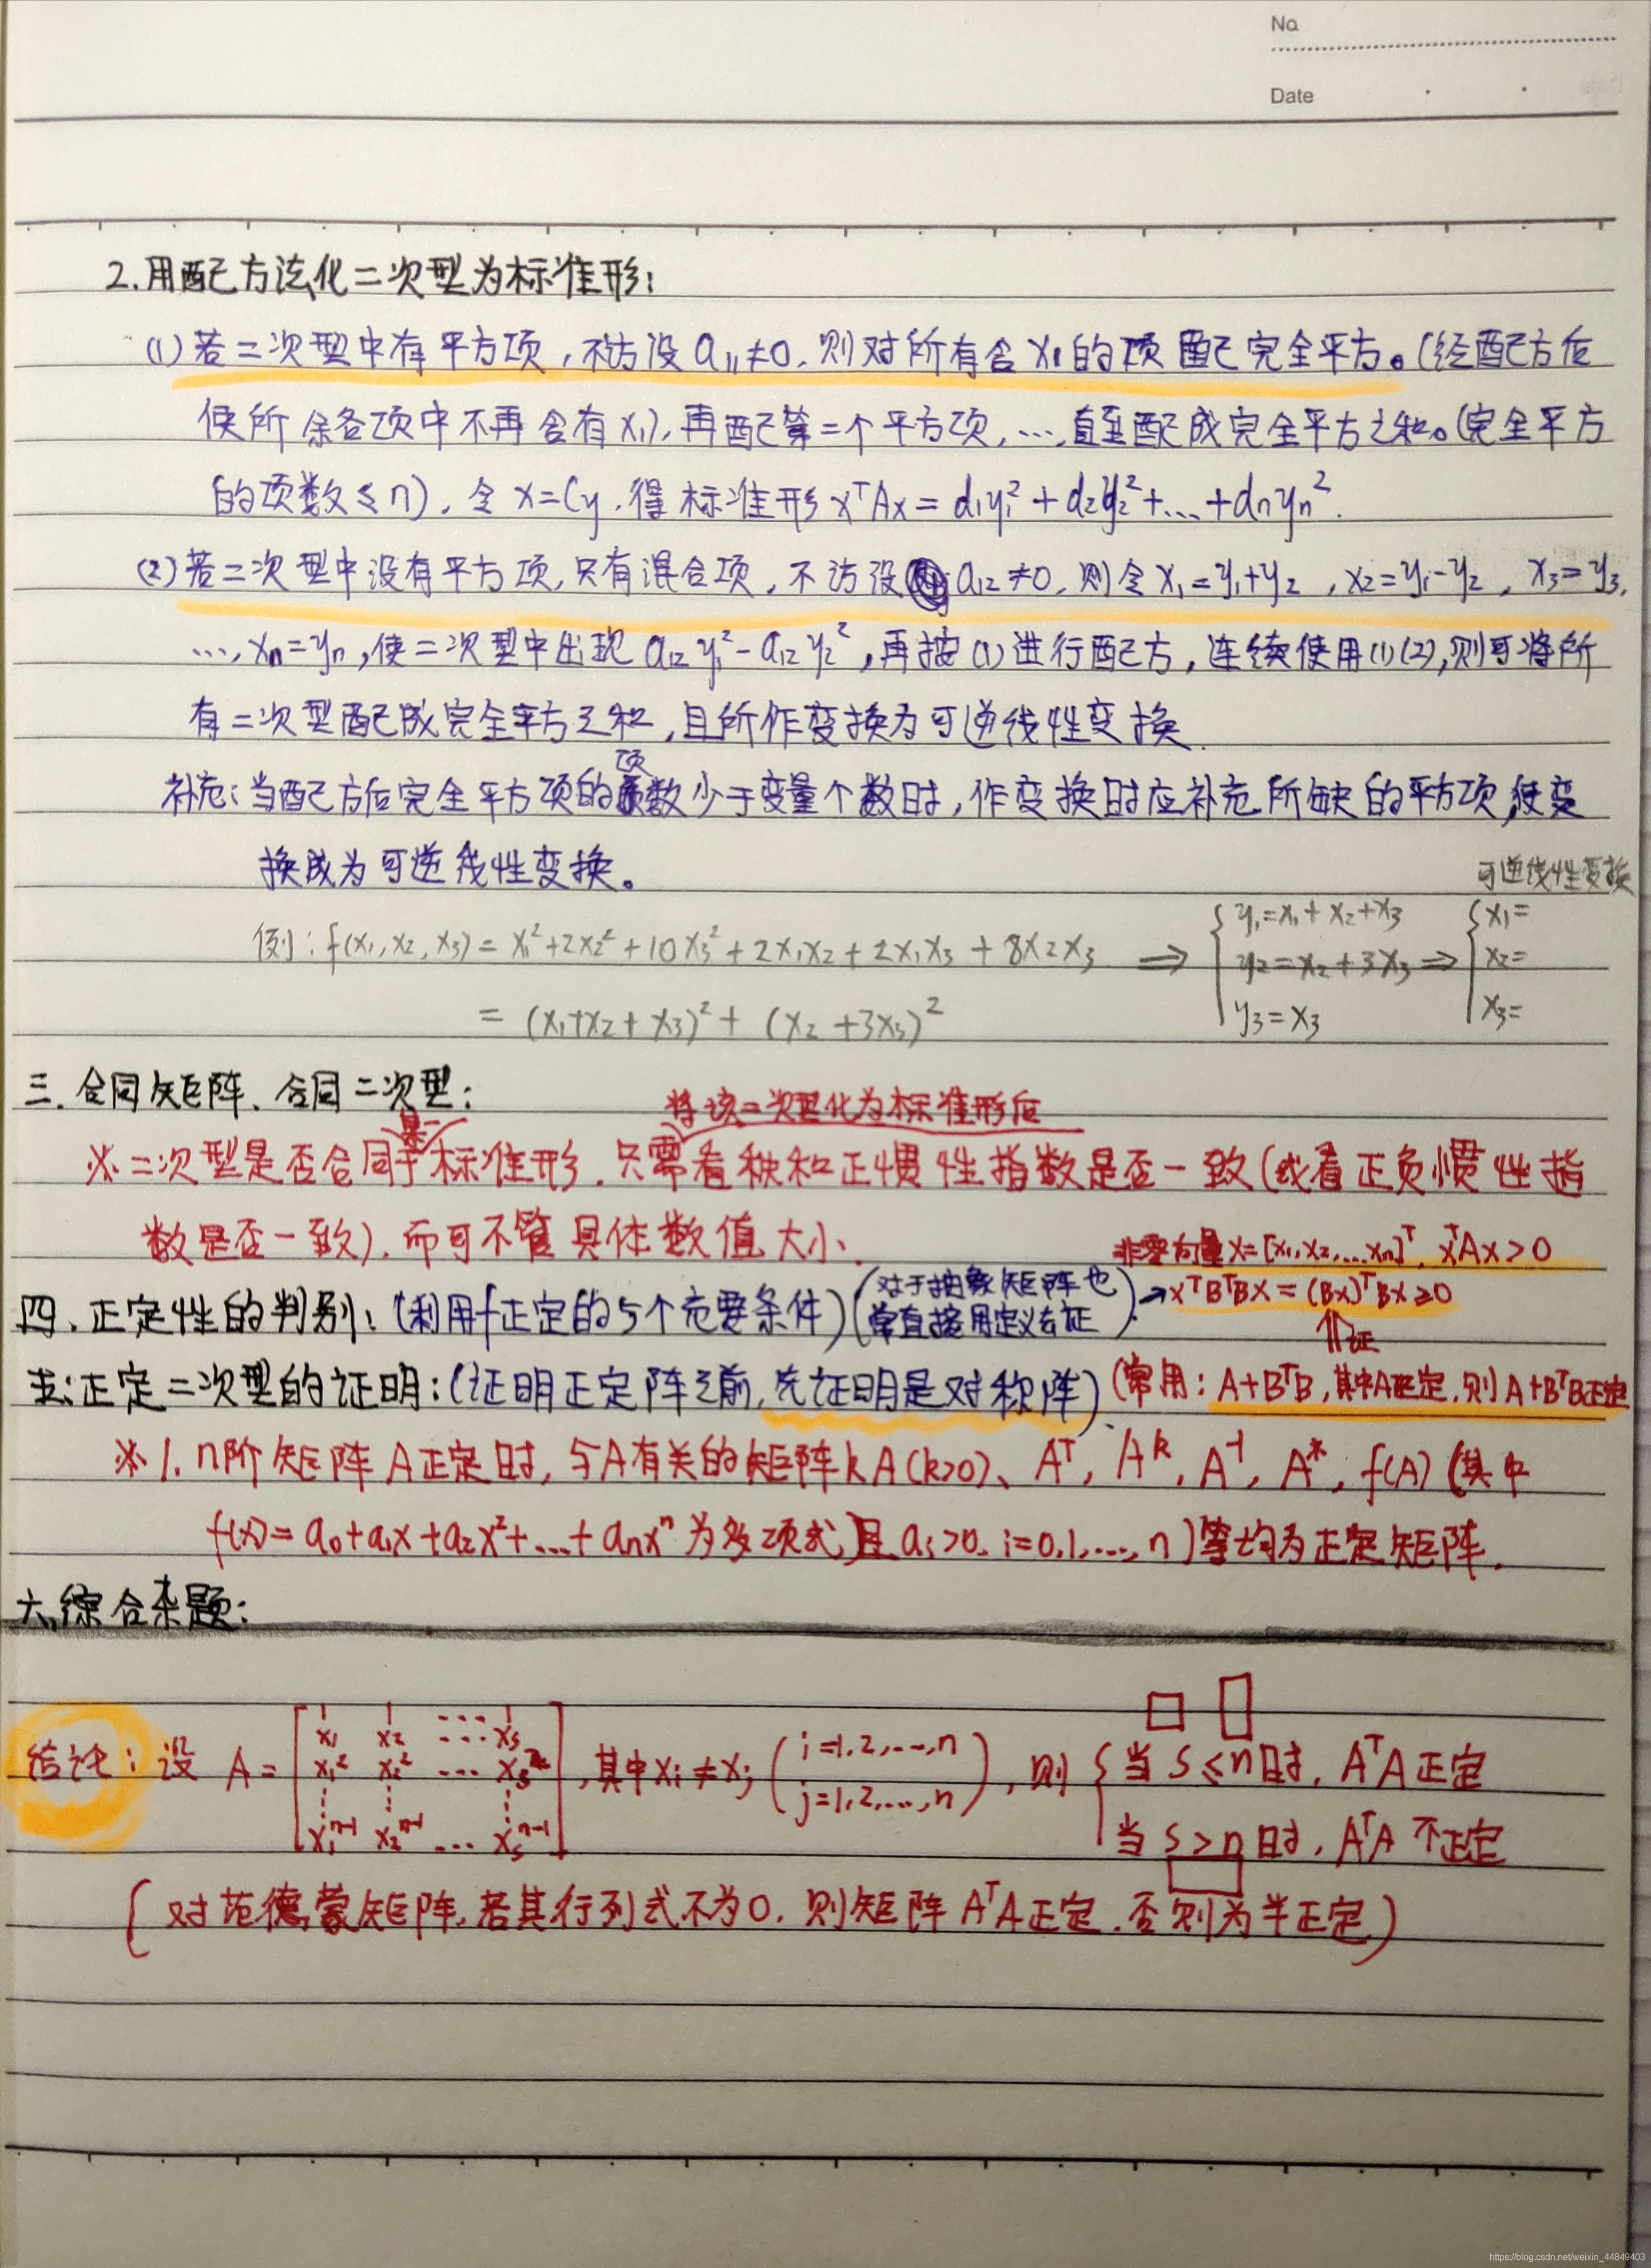 No.
Date
2.用配方法化二次型为标准形:
(1)若二次型中有平方项,不访设a₁₁≠0,则对所有含x₁的项配完全平方。(经配方后
使所余各项中不再含有x₁),再配第二个平方项,…,直至配成完全平方之和。(完全平方
的项数≤n),令x=Cy,得标准形xᵀAx=d₁y₁²+d₂y₂²+…+dₙyₙ².
(2)若二次型中没有平方项,只有混合项,不访设a₁₂≠0,则令x₁=y₁+y₂,x₂=y₁-y₂,x₃=y₃,
…,xₙ=yₙ,使二次型中出现a₁₂y₁²-a₁₂y₂²,再按(1)进行配方,连续使用(1)(2),则可将所
有二次型配成完全平方之和,且所作变换为可逆线性变换.
补充:当配方后完全平方项的项数少于变量个数时,作变换时应补充所缺的平方项,使变
换成为可逆线性变换。
可逆线性变换
例:f(x₁,x₂,x₃)=x₁²+2x₂²+10x₃²+2x₁x₂+2x₁x₃+8x₂x₃ ⇒ { y₁=x₁+x₂+x₃ y₂=x₂+3x₃ y₃=x₃ ⇒ { x₁= x₂= x₃=
=(x₁+x₂+x₃)²+(x₂+3x₃)²
三.合同矩阵、合同二次型:
将该二次型化为标准形后
※二次型是否合同于某一标准形.只需看秩和正惯性指数是否一致(或看正负惯性指
数是否一致).而可不管具体数值大小.
非零向量x=[x₁,x₂,…xₙ]ᵀ,xᵀAx>0
四.正定性的判别:(利用f正定的5个充要条件)(对于抽象矩阵也常直接用定义去证).→xᵀBᵀBx=(Bx)ᵀBx≥0
⇑证
五:正定二次型的证明:(证明正定阵之前,先证明是对称阵).(常用:A+BᵀB,其中A正定,则A+BᵀB正定
※1.n阶矩阵A正定时,与A有关的矩阵kA(k>0)、Aᵀ,Aᵏ,A⁻¹,A*,f(A)(其中
f(x)=a₀+a₁x+a₂x²+…+aₙxⁿ为多项式,且aᵢ>0,i=0,1,…,n)等均为正定矩阵.
六.综合杂题:
结论:设A=[1 1 … 1
x₁ x₂ … xₛ
x₁² x₂² … xₛ²
⋮ ⋮ ⋮
x₁ⁿ⁻¹ x₂ⁿ⁻¹ … xₛⁿ⁻¹],其中xᵢ≠xⱼ(i=1,2,…,n j=1,2,…,n),则{当s≤n时,AᵀA正定
当s>n时,AᵀA不正定
(对范德蒙矩阵,若其行列式不为0,则矩阵AᵀA正定.否则为半正定)
https://blog.csdn.net/weixin_44849403